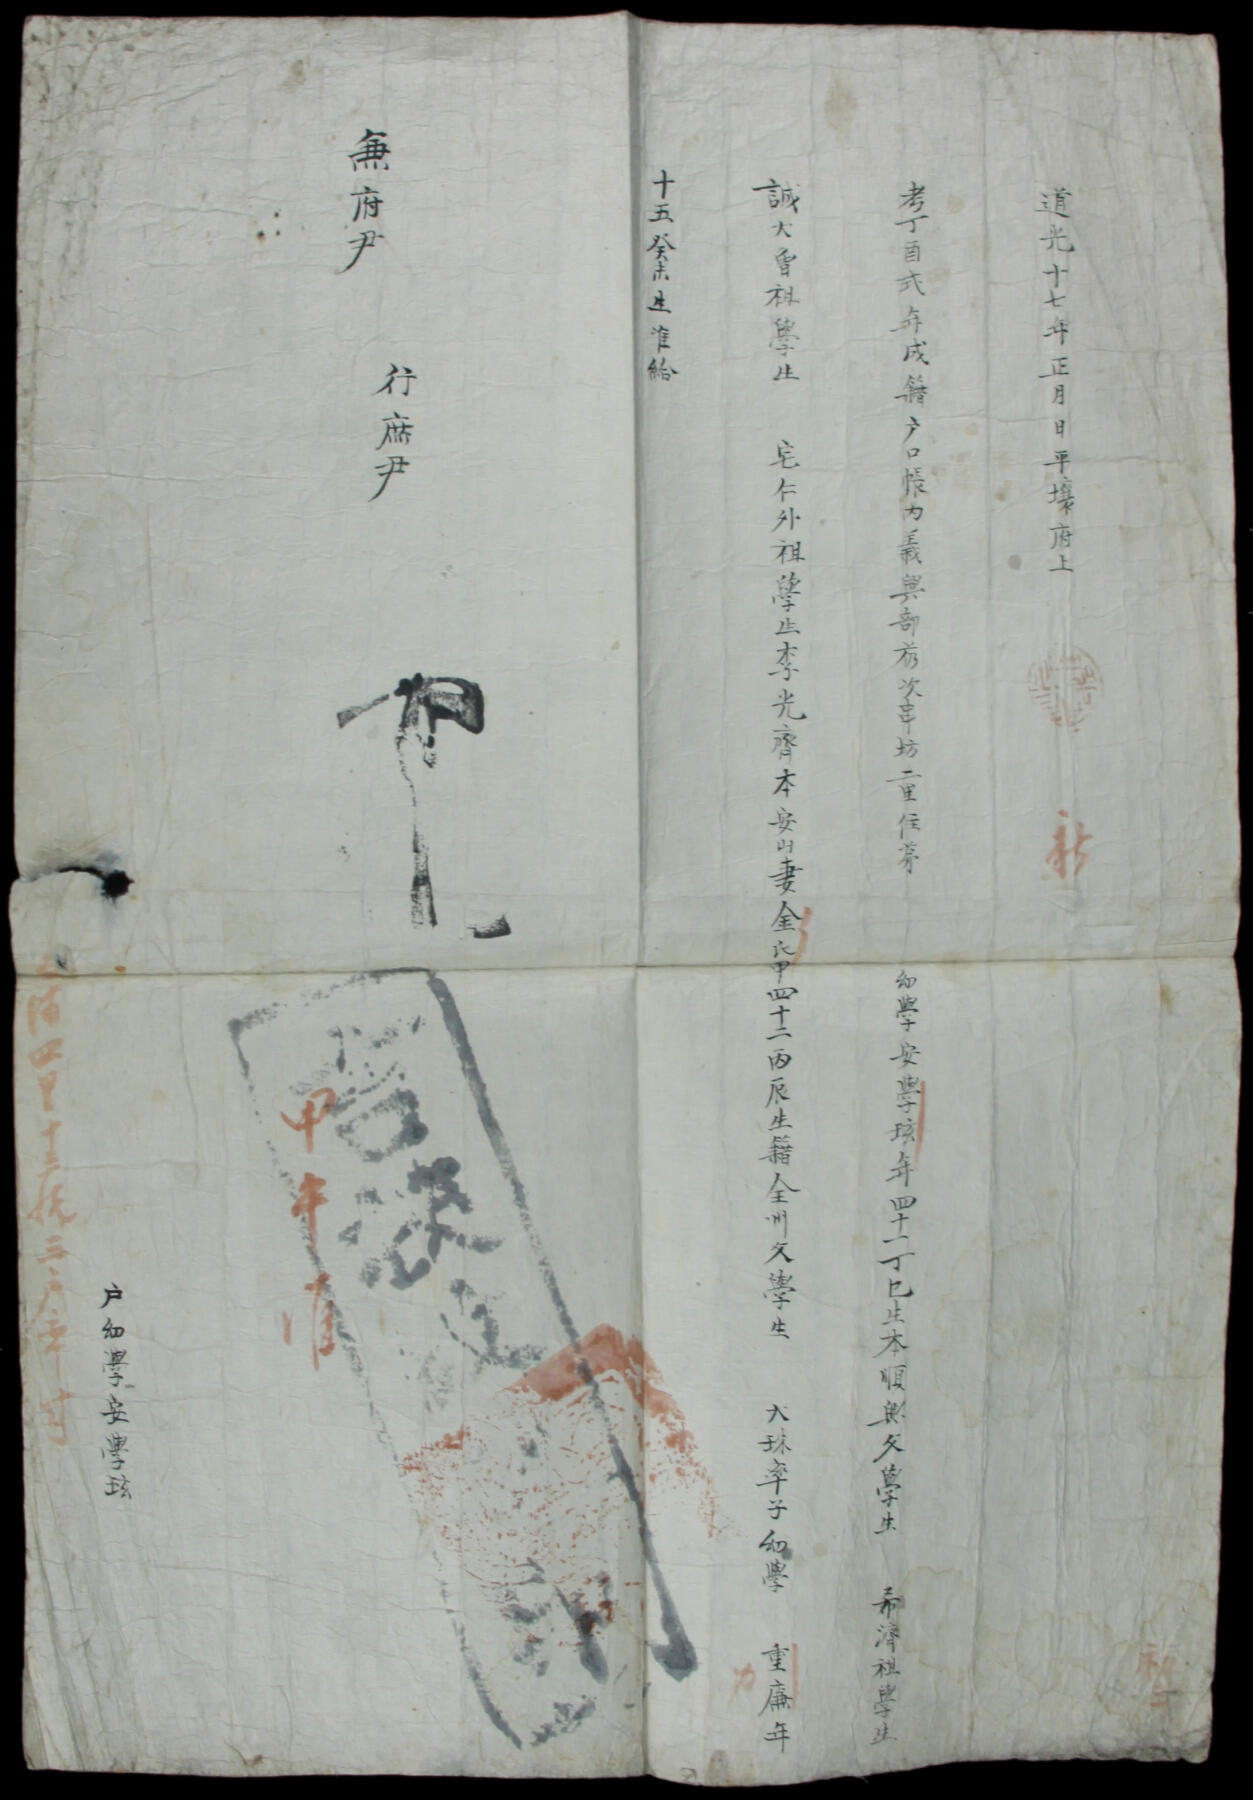 道光十七年正月日平壤府上
新
考丁酉式年成籍戶口帳內義興部茂次串坊二里住第 幼學安學玹年四十一丁巳生本順興父學生 希濟祖學生
誠大曾祖學生 宅仁外祖學生李光齊本安山妻金氏甲四十二丙辰生籍全州父學生 大珠率子幼學 重廉年
十五癸未生准給
兼府尹
行庶尹
甲午准
戶幼學安學玹